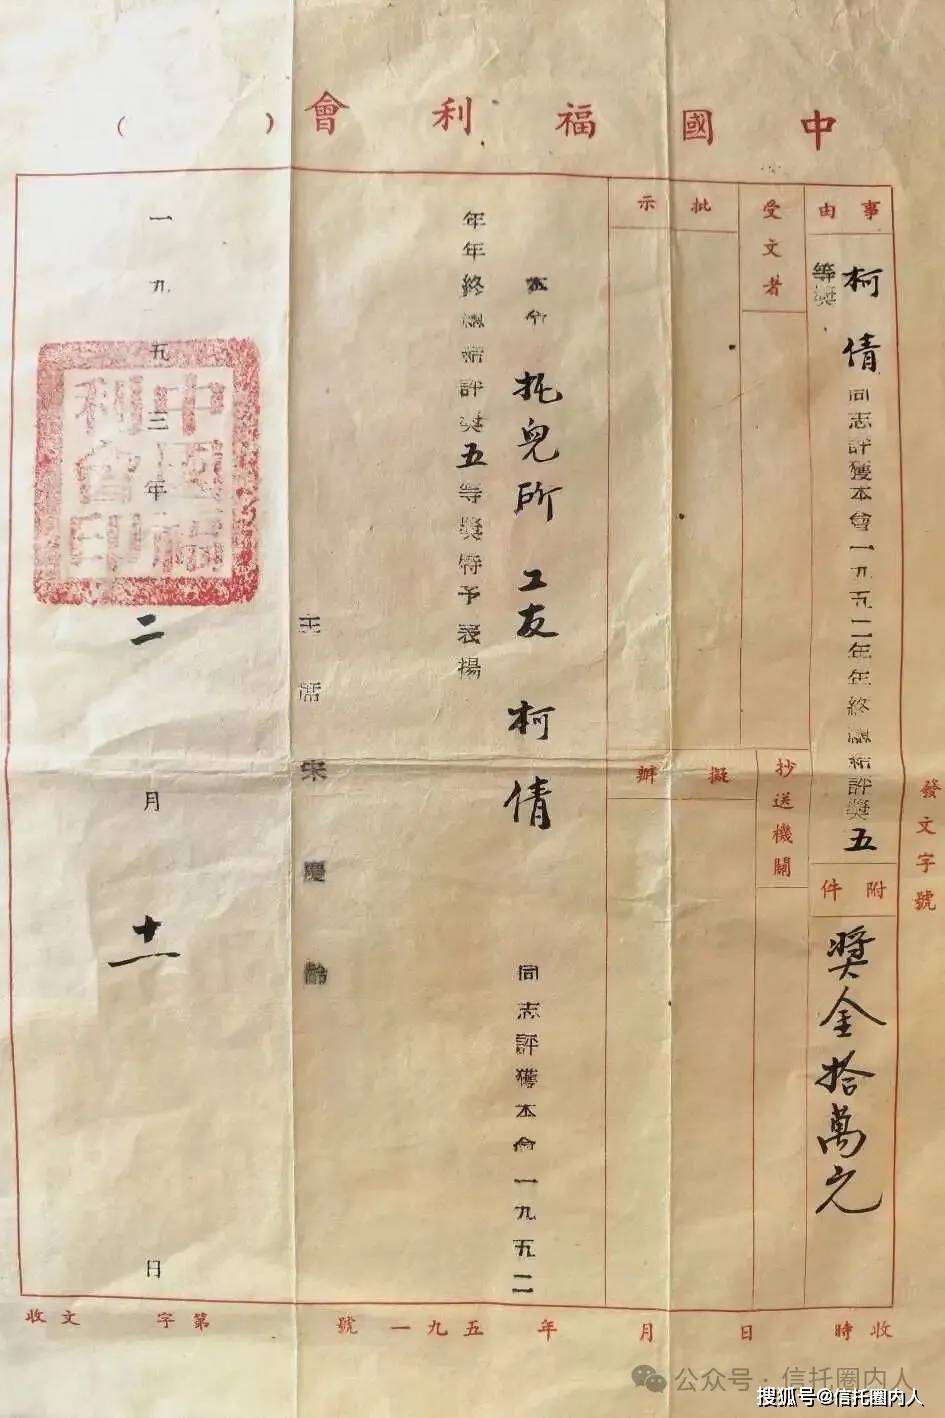 中國福利會（　　　）
發文字號
事由
柯倩同志評獲本會一九五二年年終總結評獎五
等獎
附件
獎金拾萬元
受文者
抄送機關
批示
擬辦
本會托兒所工友柯倩同志評獲本會一九五二
年年終總結評獎五等獎特予表揚
主席宋慶齡
一九五三年二月十一日
中國福
利會印
收時　日　月　年五九一　號　第　字　文收
公众号·信托圈内人
搜狐号@信托圈内人